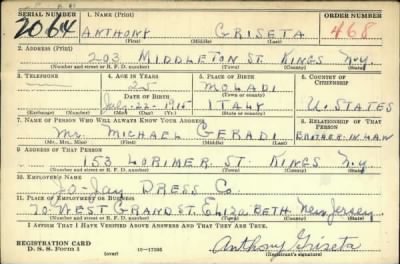 SERIAL NUMBER 1. NAME (Print) ORDER NUMBER
2064 ANTHONY GRISETA 468
(First) (Middle) (Last)
2. ADDRESS (Print)
203 MIDDLETON ST. KINGS N.Y.
(Number and street or R. F. D. number) (Town) (County) (State)
3. TELEPHONE 4. AGE IN YEARS 5. PLACE OF BIRTH 6. COUNTRY OF CITIZENSHIP
25 MOLADI
DATE OF BIRTH (Town or county)
July-22-1915 ITALY U. STATES
(Exchange) (Number) (Mo.) (Day) (Yr.) (State or country)
7. NAME OF PERSON WHO WILL ALWAYS KNOW YOUR ADDRESS 8. RELATIONSHIP OF THAT PERSON
Mr. MICHAEL GERADI BROTHER-IN-LAW
(Mr., Mrs., Miss) (First) (Middle) (Last)
9. ADDRESS OF THAT PERSON
153 LORIMER ST. KINGS N.Y
(Number and street or R. F. D. number) (Town) (County) (State)
10. EMPLOYER'S NAME
JO-JAY DRESS CO.
11. PLACE OF EMPLOYMENT OR BUSINESS
70 WEST GRAND ST. ELIZABETH NEW JERSEY
(Number and street or R. F. D. number) (Town) (County) (State)
I AFFIRM THAT I HAVE VERIFIED ABOVE ANSWERS AND THAT THEY ARE TRUE.
REGISTRATION CARD
D. S. S. Form 1 (over) 16-17105 Anthony Griseta
(Registrant's signature)